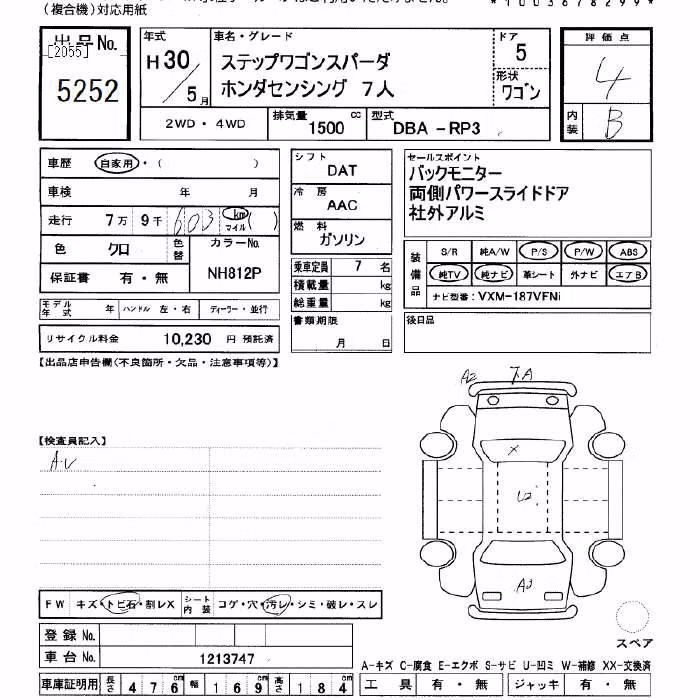 (複合機)対応用紙
*1003678299*
出品No.
[2055]
5252
年式
H30/5月
車名・グレード
ステップワゴンスパーダ
ホンダセンシング 7人
ドア
5
形状
ワゴン
評価点
4
内装
B
2WD・4WD
排気量
1500 cc
型式
DBA -RP3
車歴
自家用・( )
車検 年 月
走行 7万 9千 603 km マイル ( )
色 クロ
色替
カラーNo.
NH812P
保証書 有・無
モデル年式 年
ハンドル 左・右
ディーラー・並行
リサイクル料金 10,230 円 預託済
シフト
DAT
冷房
AAC
燃料
ガソリン
乗車定員 7 名
積載量 kg
総重量 kg
書類期限
月 日
セールスポイント
バックモニター
両側パワースライドドア
社外アルミ
装備品
S/R 純A/W P/S P/W ABS
純TV 純ナビ 革シート 外ナビ エアB
ナビ型番:VXM-187VFNi
後日品
【出品店申告欄(不良箇所・欠品・注意事項等)】
【検査員記入】
A・U
A2
X
U2
A2
FW キズ・トビ石・割レX
シート内装 コゲ・穴・汚レ・シミ・破レ・スレ
登録No.
車台No. 1213747
車庫証明用 長さ 476cm 幅 169cm 高さ 184
スペア
A-キズ C-腐食 E-エクボ S-サビ U-凹ミ W-補修 XX-交換済
工具 有・無 ジャッキ 有・無